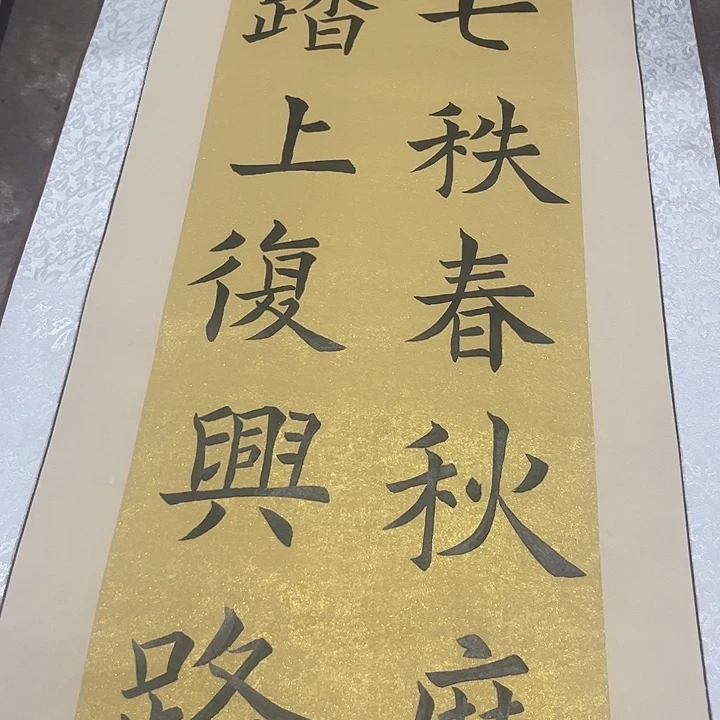 七秩春秋
踏上復興路